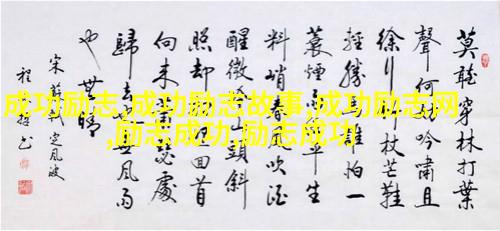 成功励志,成功励志故事,成功励志网
,励志成功,励志成功
莫聽穿林打葉
聲何妨吟嘯且
徐行竹杖芒鞋
輕勝馬誰怕一
蓑煙雨平生
料峭春風吹酒
醒微冷山頭斜
照却回首
向來蕭瑟處
歸去無風雨
也無晴
宋蘇軾定風波
程书